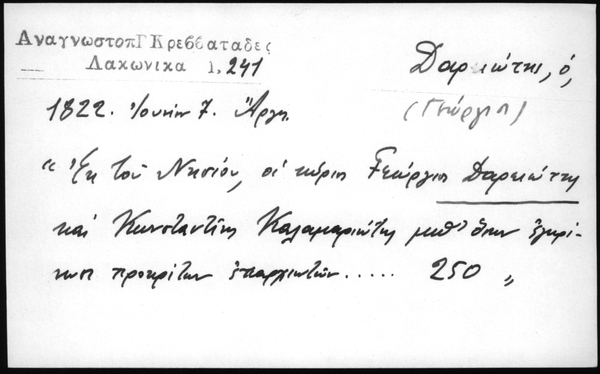 ΑναγνωστοπΓ Κρεββαταδες
Λακωνικα 1, 241
Δαρειώτης, ὁ,
(Γεώργιος)
1822. Ἰουνίου 7. Ἄργος.
"Ἐκ τοῦ Νησίου, οἱ κύριοι Γεώργιος Δαρειώτης
καὶ Κωνσταντῖνος Καλαμαριώτης μεθ' ὅσων ἐγκρί-
νωσι προκρίτων ἐπαρχιωτῶν ..... 250 "